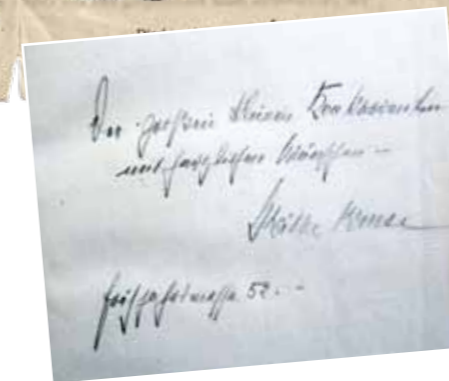 Der großen kleinen Konkurrentin
mit herzlichen Wünschen –
Käthe Kruse
Frühjahrmesse 52. –